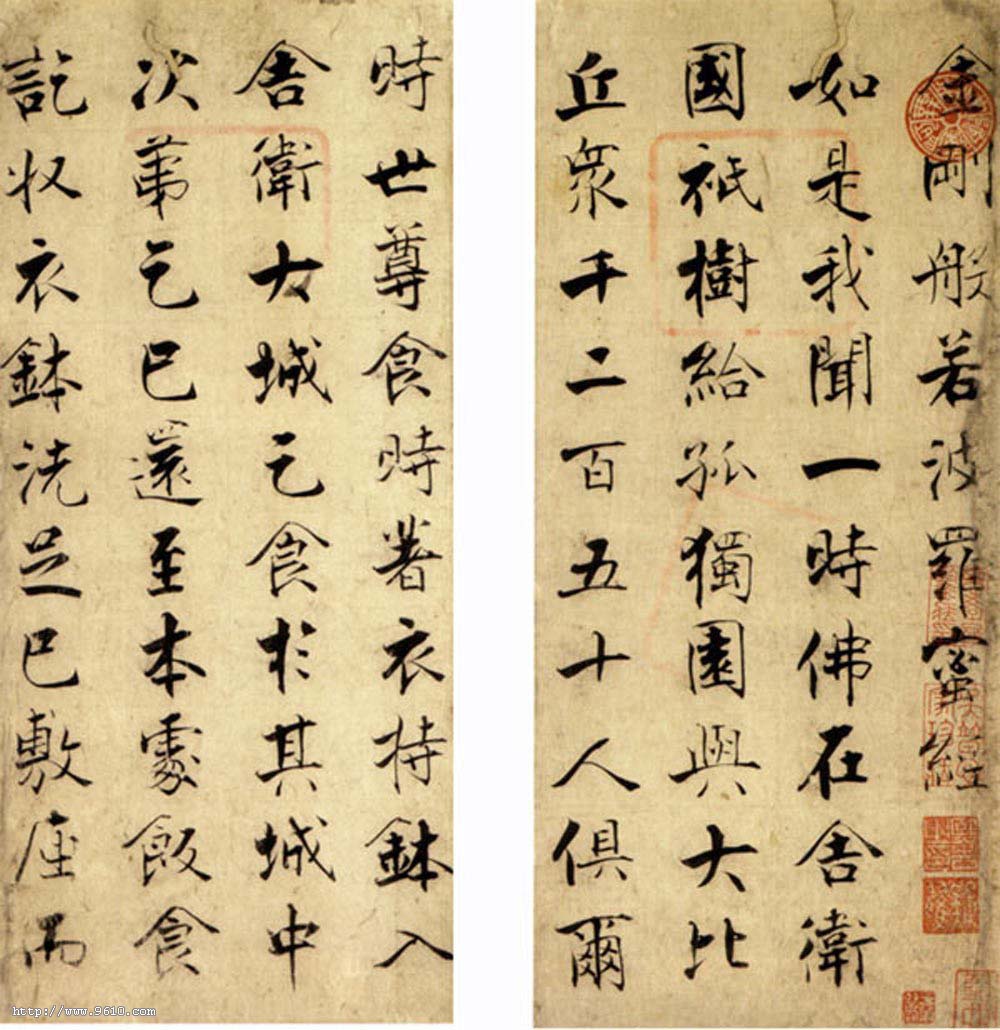 金剛般若波羅蜜經
如是我聞一時佛在舍衛
國祇樹給孤獨園與大比
丘眾千二百五十人俱爾
時世尊食時著衣持鉢入
舍衛大城乞食於其城中
次第乞已還至本處飯食
訖收衣鉢洗足已敷座而
http://www.9610.com/